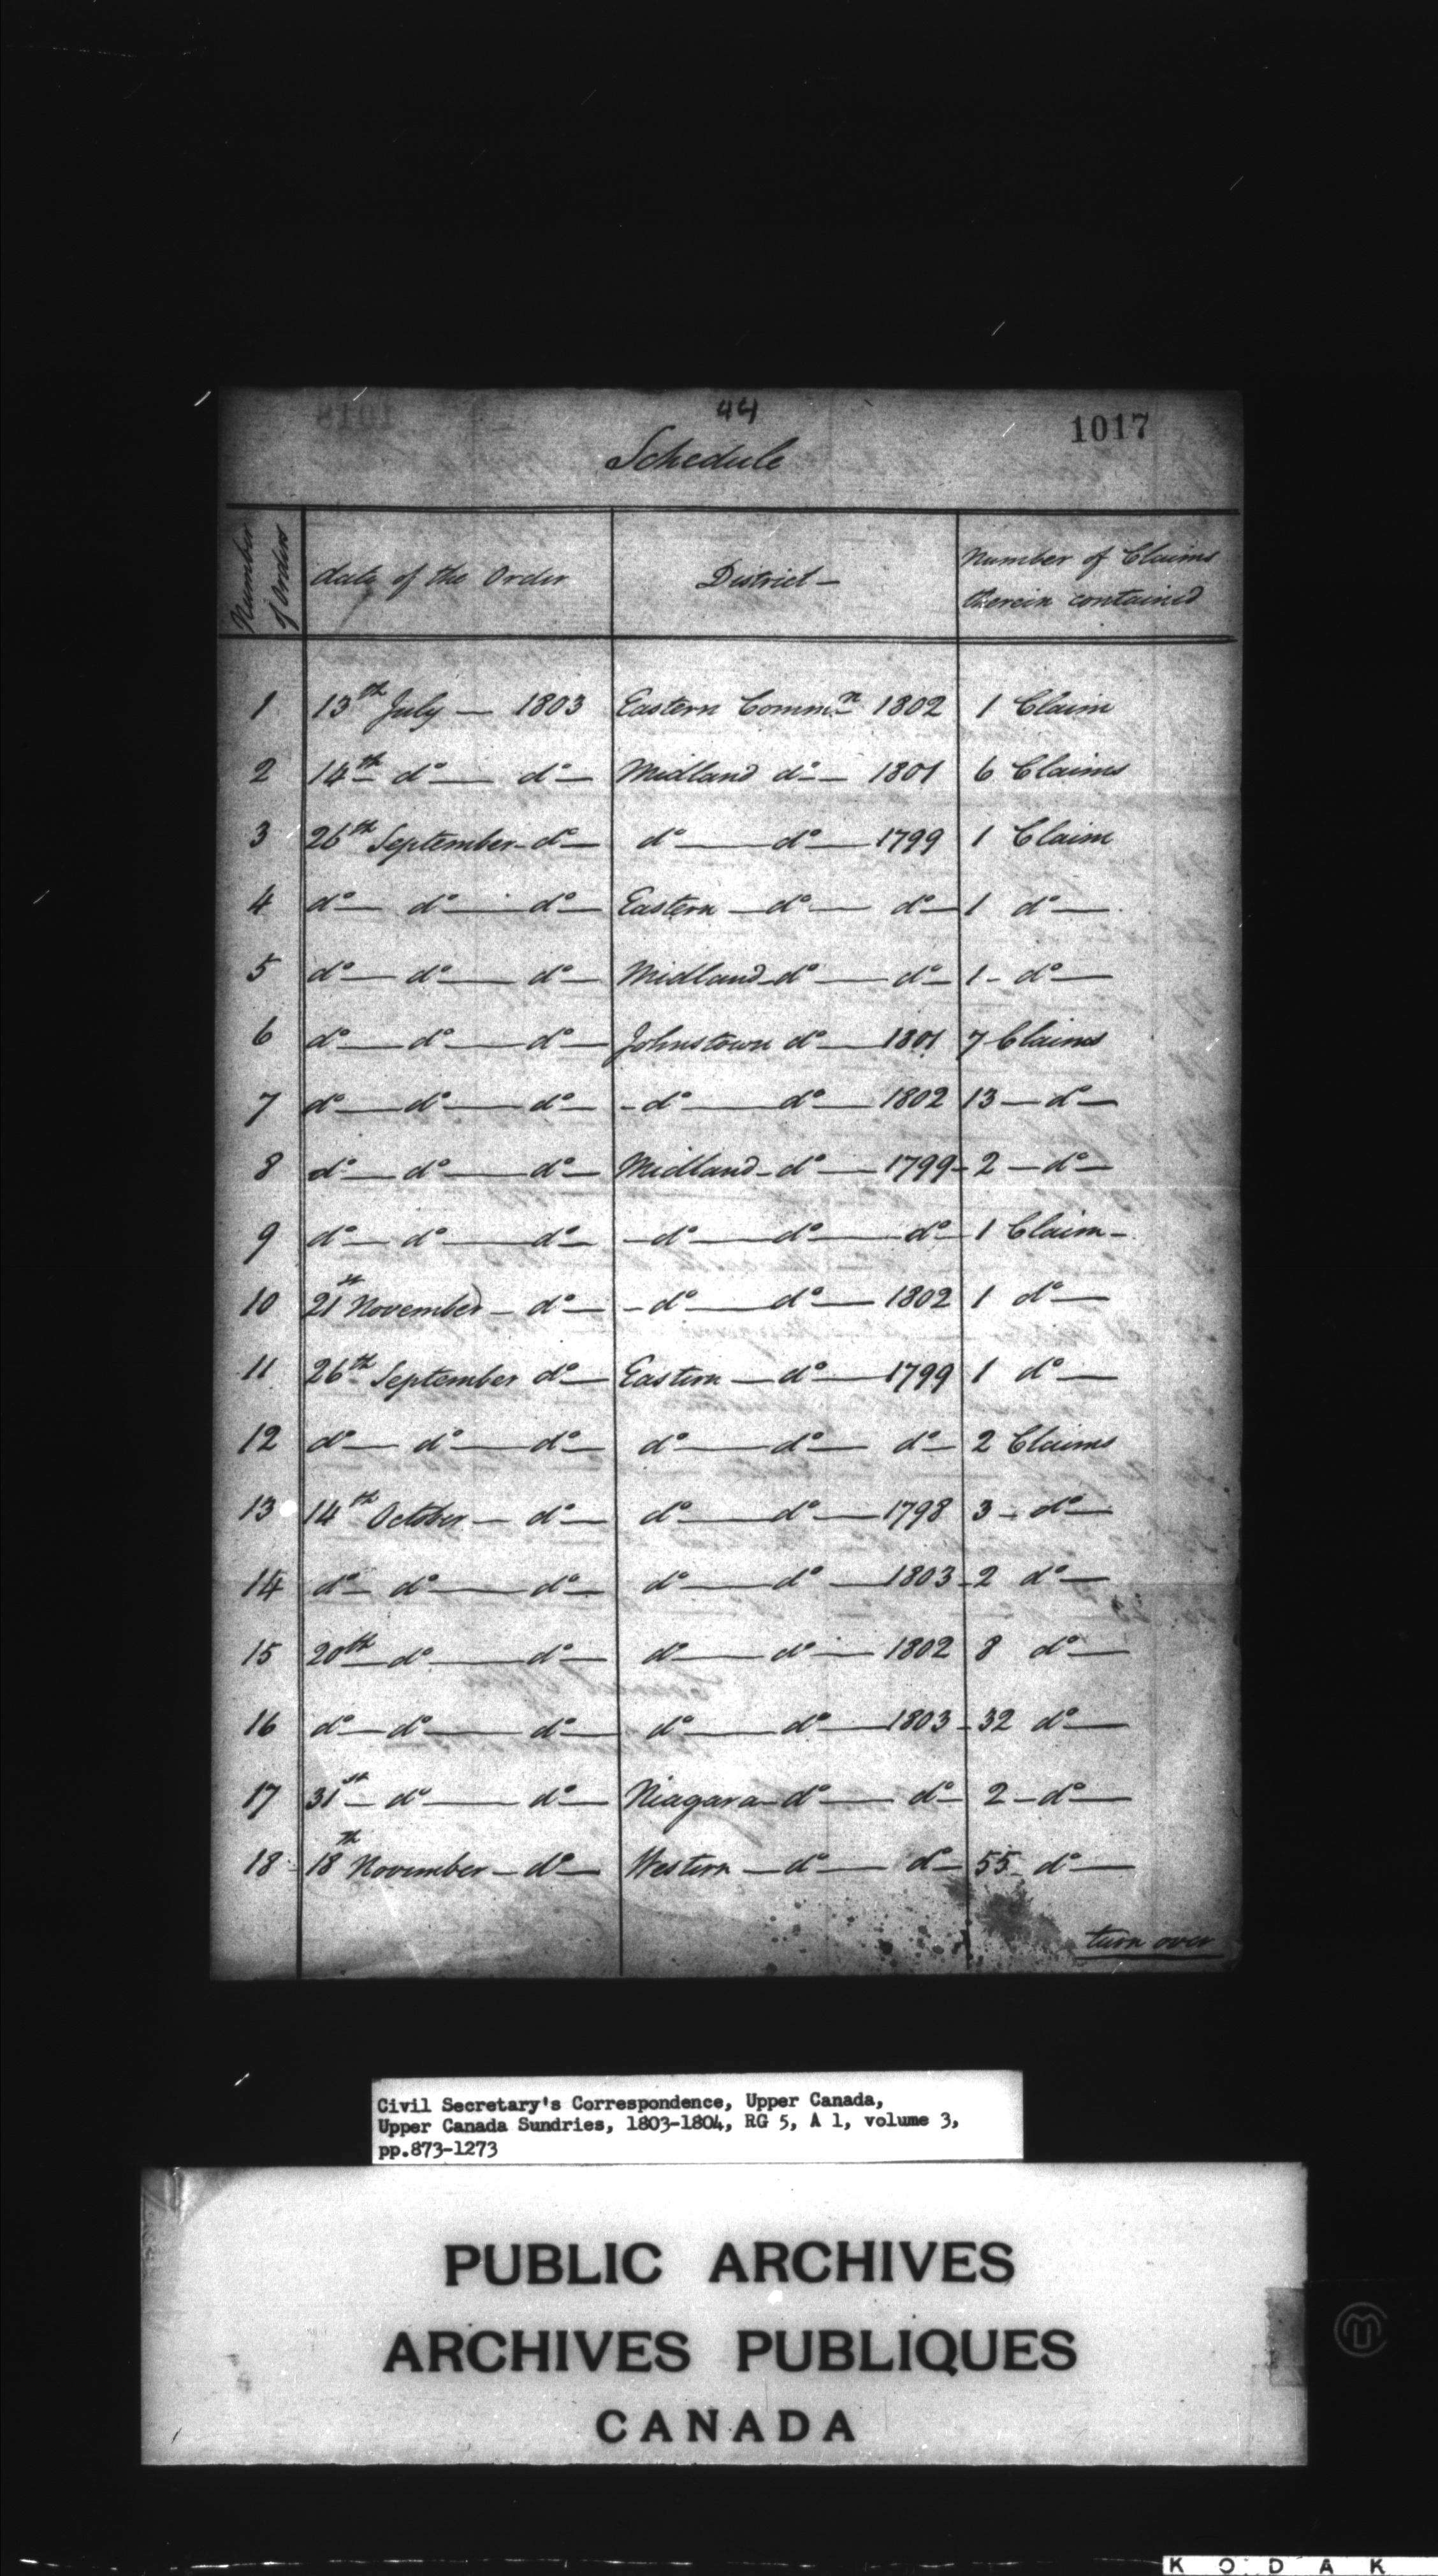 44
1017
Schedule
Number of Orders
date of the Order
District —
Number of Claims therein contained
1 13th July — 1803 Eastern Commn 1802 1 Claim
2 14th do — do — Midland do — 1801 6 Claims
3 26th September - do — do — do — 1799 1 Claim
4 do — do — do — Eastern — do — do — 1 do —
5 do — do — do — Midland - do — do — 1 - do —
6 do — do — do — Johnstown do — 1801 7 Claims
7 do — do — do — - do — do — 1802 13 — do —
8 do — do — do — Midland - do — 1799 - 2 — do —
9 do — do — do — - do — do — do — 1 Claim -
10 21st November - do — - do — do — 1802 1 do —
11 26th September do — Eastern — do — 1799 1 do —
12 do — do — do — do — do — do — 2 Claims
13 14th October — do — do — do — 1798 3 - do —
14 do — do — do — do — do — 1803 - 2 do —
15 20th — do — do — do — do — 1802 8 do —
16 do — do — do — do — do — 1803 - 32 do —
17 31st — do — do — Niagara - do — do — 2 - do —
18 18th November - do — Western — do — do — 55 - do —
turn over
Civil Secretary's Correspondence, Upper Canada,
Upper Canada Sundries, 1803-1804, RG 5, A 1, volume 3,
pp.873-1273
PUBLIC ARCHIVES
ARCHIVES PUBLIQUES
CANADA
KODAK